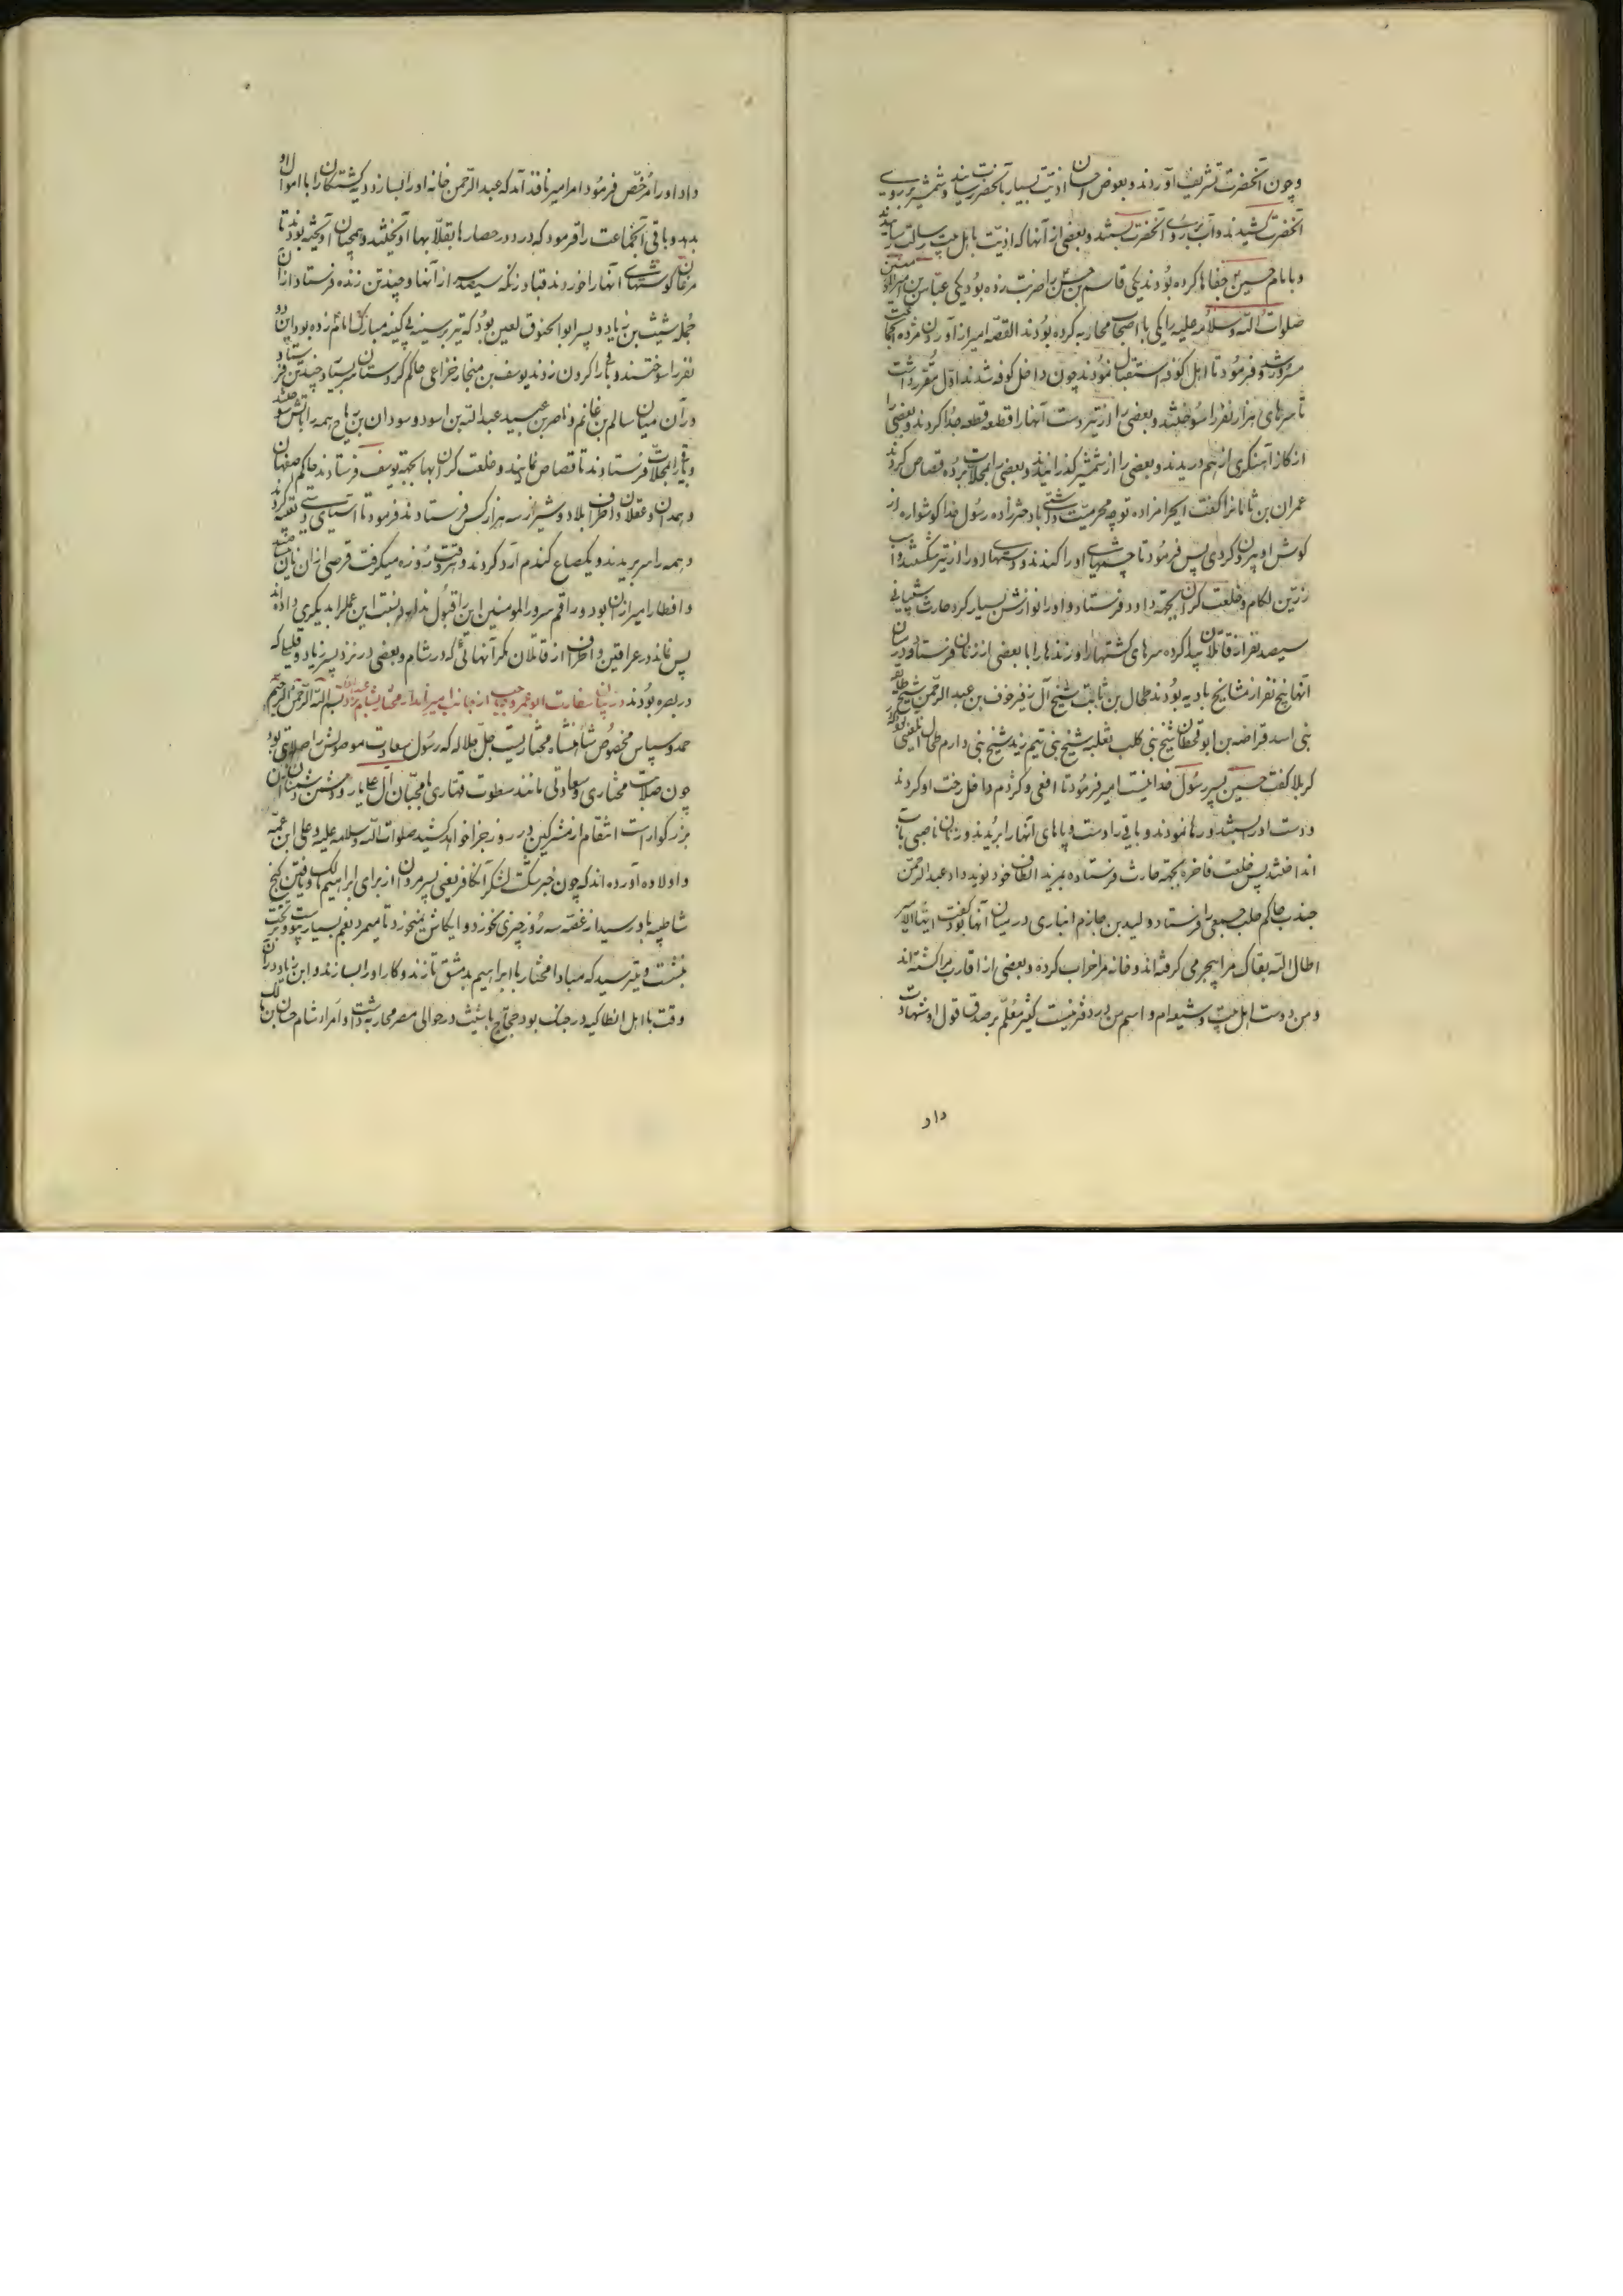 وچون آنحضرت تشریف آوردند و بعوض احسان اذیت بسیار بآنحضرت رسانیدند و شمشیر بر روی
آنحضرت کشیدند و آب بر روی آنحضرت بستند و بعضی از آنها که اذیت باهل بیت رسالت
و بامام حسین جفاها کرده بودند یکی قاسم بن حسن را ضربت زده بود یکی عباس بن امیرالمؤمنین
صلوات الله وسلامه علیه را یکی با اصحاب محاربه کرده بودند القصه امیر از آوردن مژده آنجماعت
مسرور شد و فرمود تا اهل کوفه استقبال نمودند چون داخل کوفه شدند اول مقرر داشت
تا سرهای هزار نفر را سوختند و بعضی را از تیر دست آنها را قطعه قطعه جدا کردند و بعضی را
از کاز آهنگری از هم دریدند و بعضی را از شمشیر گذرانیدند و بعضی را بمحلات برده قصاص کردند
عمران بن را گفت ایحرامزاده تو چه محرمیت داشتی با دخترزاده رسول خدا گوشواره از
گوش او بیرون کردی پس فرمود تا چشمهای او را کندند و دستهای او را از تیر شکستند و اسب
زرین لکام و خلعت گران بجهة داود فرستاد و او را نوازش بسیار کرد حارث شیبانی
سیصد نفر از قاتلان پیدا کرده سرهای کشتها را و زندها را با بعضی از زنان فرستاد در میان
آنها پنج نفر از مشایخ بادیه بودند طحال بن ثابت شیخ آل زفر خوف بن عبد الرحمن شیخ طایفه
بنی اسد قراضه بن ابو قحطان شیخ بنی کلب ثعلبه شیخ بنی تیم زید شیخ بنی دارم طحال
کربلا گفت حسین پسر رسول خدا نیست امیر فرمود تا افعی و کژدم داخل رخت او کردند
و دست او را بستند و رها نمودند و باقی را دست و پاهای آنها را بریدند و زنان ناصبی را بآتش
انداختند پس خلعت فاخره بجهة حارث فرستاده بمزید الطاف خود نوید داد عبد الرحمن
جندب حاکم حلب جمعی را فرستاد ولید بن حازم انباری در میان آنها بود گفت ایها الامیر
اطال الله بقاک مرا بیجرمی گرفته‌اند و خانه مرا خراب کرده و بعضی از اقارب مرا کشته‌اند
و من دوست اهل بیت و شیعه‌ام و اسم من در دفتر نیست کثیر معلم بر صدق قول او شهادت
داد
داد او را مرخص فرمود امر امیر نافذ آمد که عبد الرحمن خانه او را بسازد و دیه کشتگان را با اموال او
بدهد و باقی آنجماعت را فرمود که در دور حصارها بقلابها آویختند و همچنان آویخته بودند تا
مرغان گوشتهای آنها را خوردند قباد زنگه سیصد سر از آنها و چند تن زنده فرستاد از آن
جمله شیث بن زیاد و پسر ابو الحنوق لعین بود که تیر بر سینه بی کینه مبارک امام زده بود این دو
نفر را سوختند و باقی را گردن زدند یوسف بن منجار خزاعی حاکم کردستان سر بسیار و چند تن فرستاد
در آن میان سالم بن غانم و ناصر بن عبید عبد الله بن اسود و سودان بن ریاح همه را بآتش سوختند
و باقی را بمحلات فرستادند تا قصاص نمایند و خلعت گران بها بجهة یوسف فرستادند حاکم اصفهان
و همدان و عقلان و اطراف بلاد و شیراز سه هزار کس فرستادند فرمود تا آسیای دستی تعبیه کردند
و همه را سر بریدند و یکصاع گندم آرد کردند و هر وقت روزه میگرفت قرصی از آن نان میپختند
و افطار امیر از آن بود و راقم سرور المومنین این را قبول ندارد و نسبت این عمل را بدیگری داده‌اند
پس نماند در عراقین و اطراف از قاتلان مگر آنهائی که در شام و بعضی در نزد پسر زیاد و قلیلی که
در بصره بودند در بیان سفارت ابو عمرو حاجب از جانب امیر نامدار مختار بشام بسم الله الرحمن الرحیم
حمد و سپاس مخصوص شاهنشاه مختاریست جل جلاله که رسول سعادت موصولش را
چون صلابت مختاری و سعادتی مانند سطوت قهاری با محبان آل علی یار و دشمن دشمنان آن
بزرگوار است انتقام از مشرکین در روز جزا خواهد کشید صلوات الله وسلامه علیه و علی ابن عمه
و اولاده آورده‌اند که چون خبر شکست لشکر آن کافر یعنی پسر مروان از برای ابراهیم مالک و یافتن گنج
شاطییه باو رسید از غصه سه روز چیزی نخورد و ایکاش نمیخورد تا میمرد بغم بسیار بر تخت
نشست و میترسید که مبادا مختار با ابراهیم بدمشق تازند و کار او را بسازند و ابن زیاد در آن
وقت با اهل انطاکیه در جنگ بود حجاج با شیث در حوالی مصر محاربه داشت و امراء شام حسان بن مالک